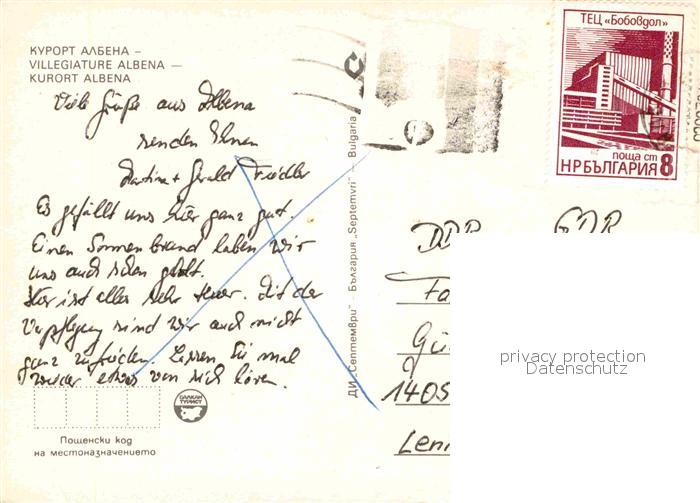 КУРОРТ АЛБЕНА –
VILLEGIATURE ALBENA —
KURORT ALBENA
Viele Grüße aus Albena
senden Ihnen
Martina + Gerald Fiedler
Es gefällt uns hier ganz gut.
Einen Sonnenbrand haben wir
uns auch schon geholt.
Hier ist alles sehr teuer. Mit der
Verpflegung sind wir auch nicht
ganz zufrieden. Lassen Sie mal
wieder etwas von sich hören.
БАЛКАН
ТУРИСТ
Пощенски код
на местоназначението
ДИ „Септември“ — България „Septemvri“ — Bulgaria
ТЕЦ „Бобовдол“
поща ст
НР БЪЛГАРИЯ 8
DDR GDR
Fa
Gü
1405
Len
privacy protection
Datenschutz